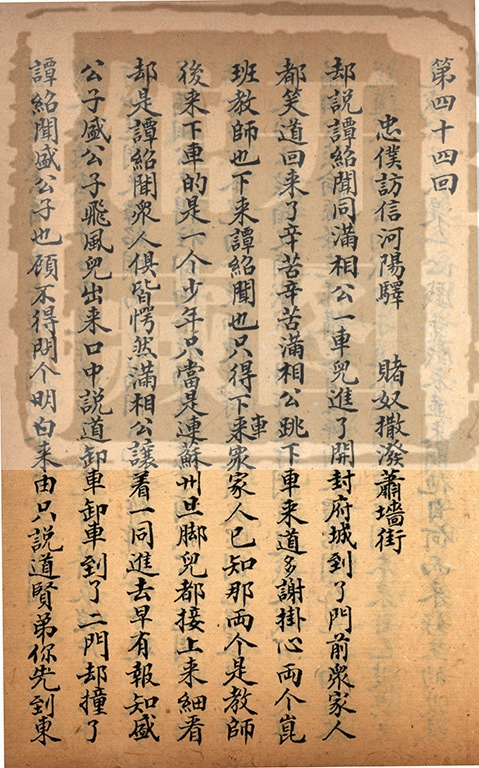 第四十四回
忠僕訪信河陽驛 賭奴撒潑蕭墻街
却說譚紹聞同滿相公一車兒進了開封府城到了門前衆家人
都笑道回来了辛苦辛苦滿相公跳下車来道多謝掛心两个崑
班教師也下来譚紹聞也只得下車来衆家人已知那两个是教師
後来下車的是一个少年只當是連蘇州旦脚兒都接上来細看
却是譚紹聞衆人俱皆愕然滿相公讓着一同進去早有報知盛
公子盛公子飛風兒出来口中說道卸車卸車到了二門却撞了
譚紹聞盛公子也顧不得問个明白来由只說道賢弟你先到東